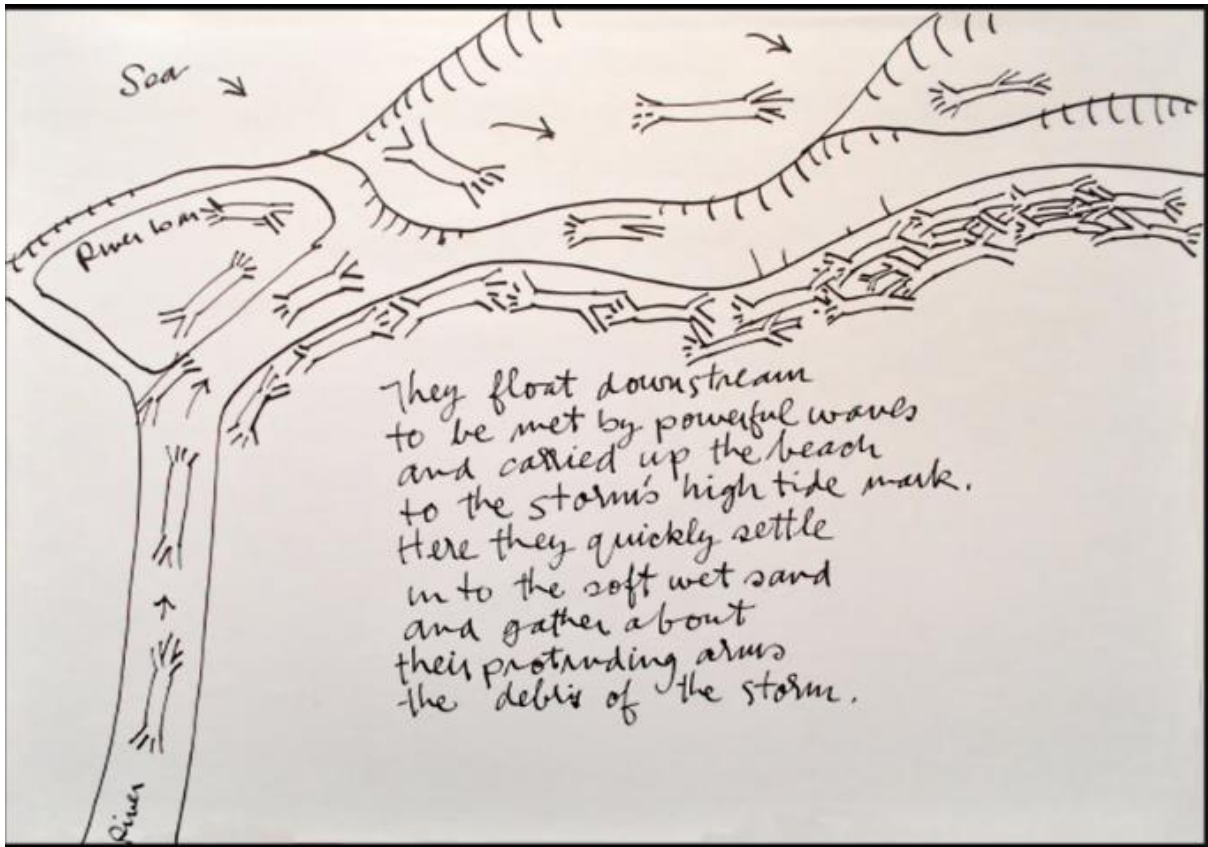 Sea
River bar
They float downstream
to be met by powerful waves
and carried up the beach
to the storm's high tide mark.
Here they quickly settle
in to the soft wet sand
and gather about
their protruding arms
the debris of the storm.
River